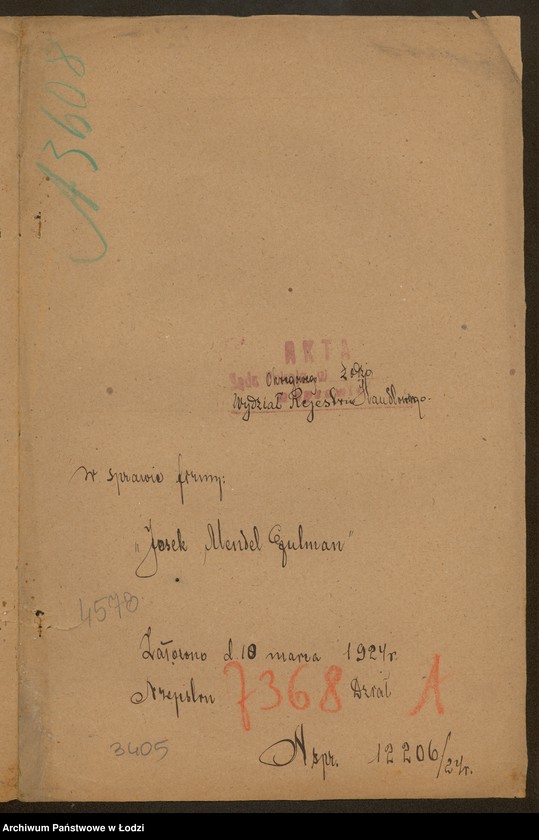 A 3608
AKTA
Sądu Okręgowego w Łodzi
Wydział Rejestru Handlowego.
w sprawie firmy:
„Josek Mendel Szulman"
4578
Założono d. 10 marca 1924 r.
N rejestru 7368 Dział A
3405
N spr. 12206/24 r.
Archiwum Państwowe w Łodzi